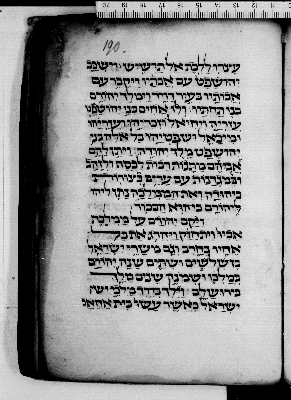 190.
עצרו ללכת אל תרשיש וישכב
יהושפט עם אבתיו ויקבר עם
אבותיו בעיר דויד וימלך יהורם
בנו תחתיו ולו אחים בני יהושפט
עזריה ויחיאל וזכריהו ועזריהו
ומיכאל ושפטיהו כל אלה בני
יהושפט מלך יהודה ויתן להם
אביהם מתנות רבות לכסף ולזהב
ולמגדנות עם ערים
ביהודה ואת הממלכה נתן ליהו
ליהורם כי הוא הבכור
ויקם יהורם על ממלכת
אביו ויתחזק ויהרג את כל
אחיו בחרב וגם משרי ישראל
בן שלשים ושתים שנה יהורם
במלכו ושמונה שנים מלך
בירושלם וילך בדרך מלכי יש
ישראל כאשר עשו בית אחאב